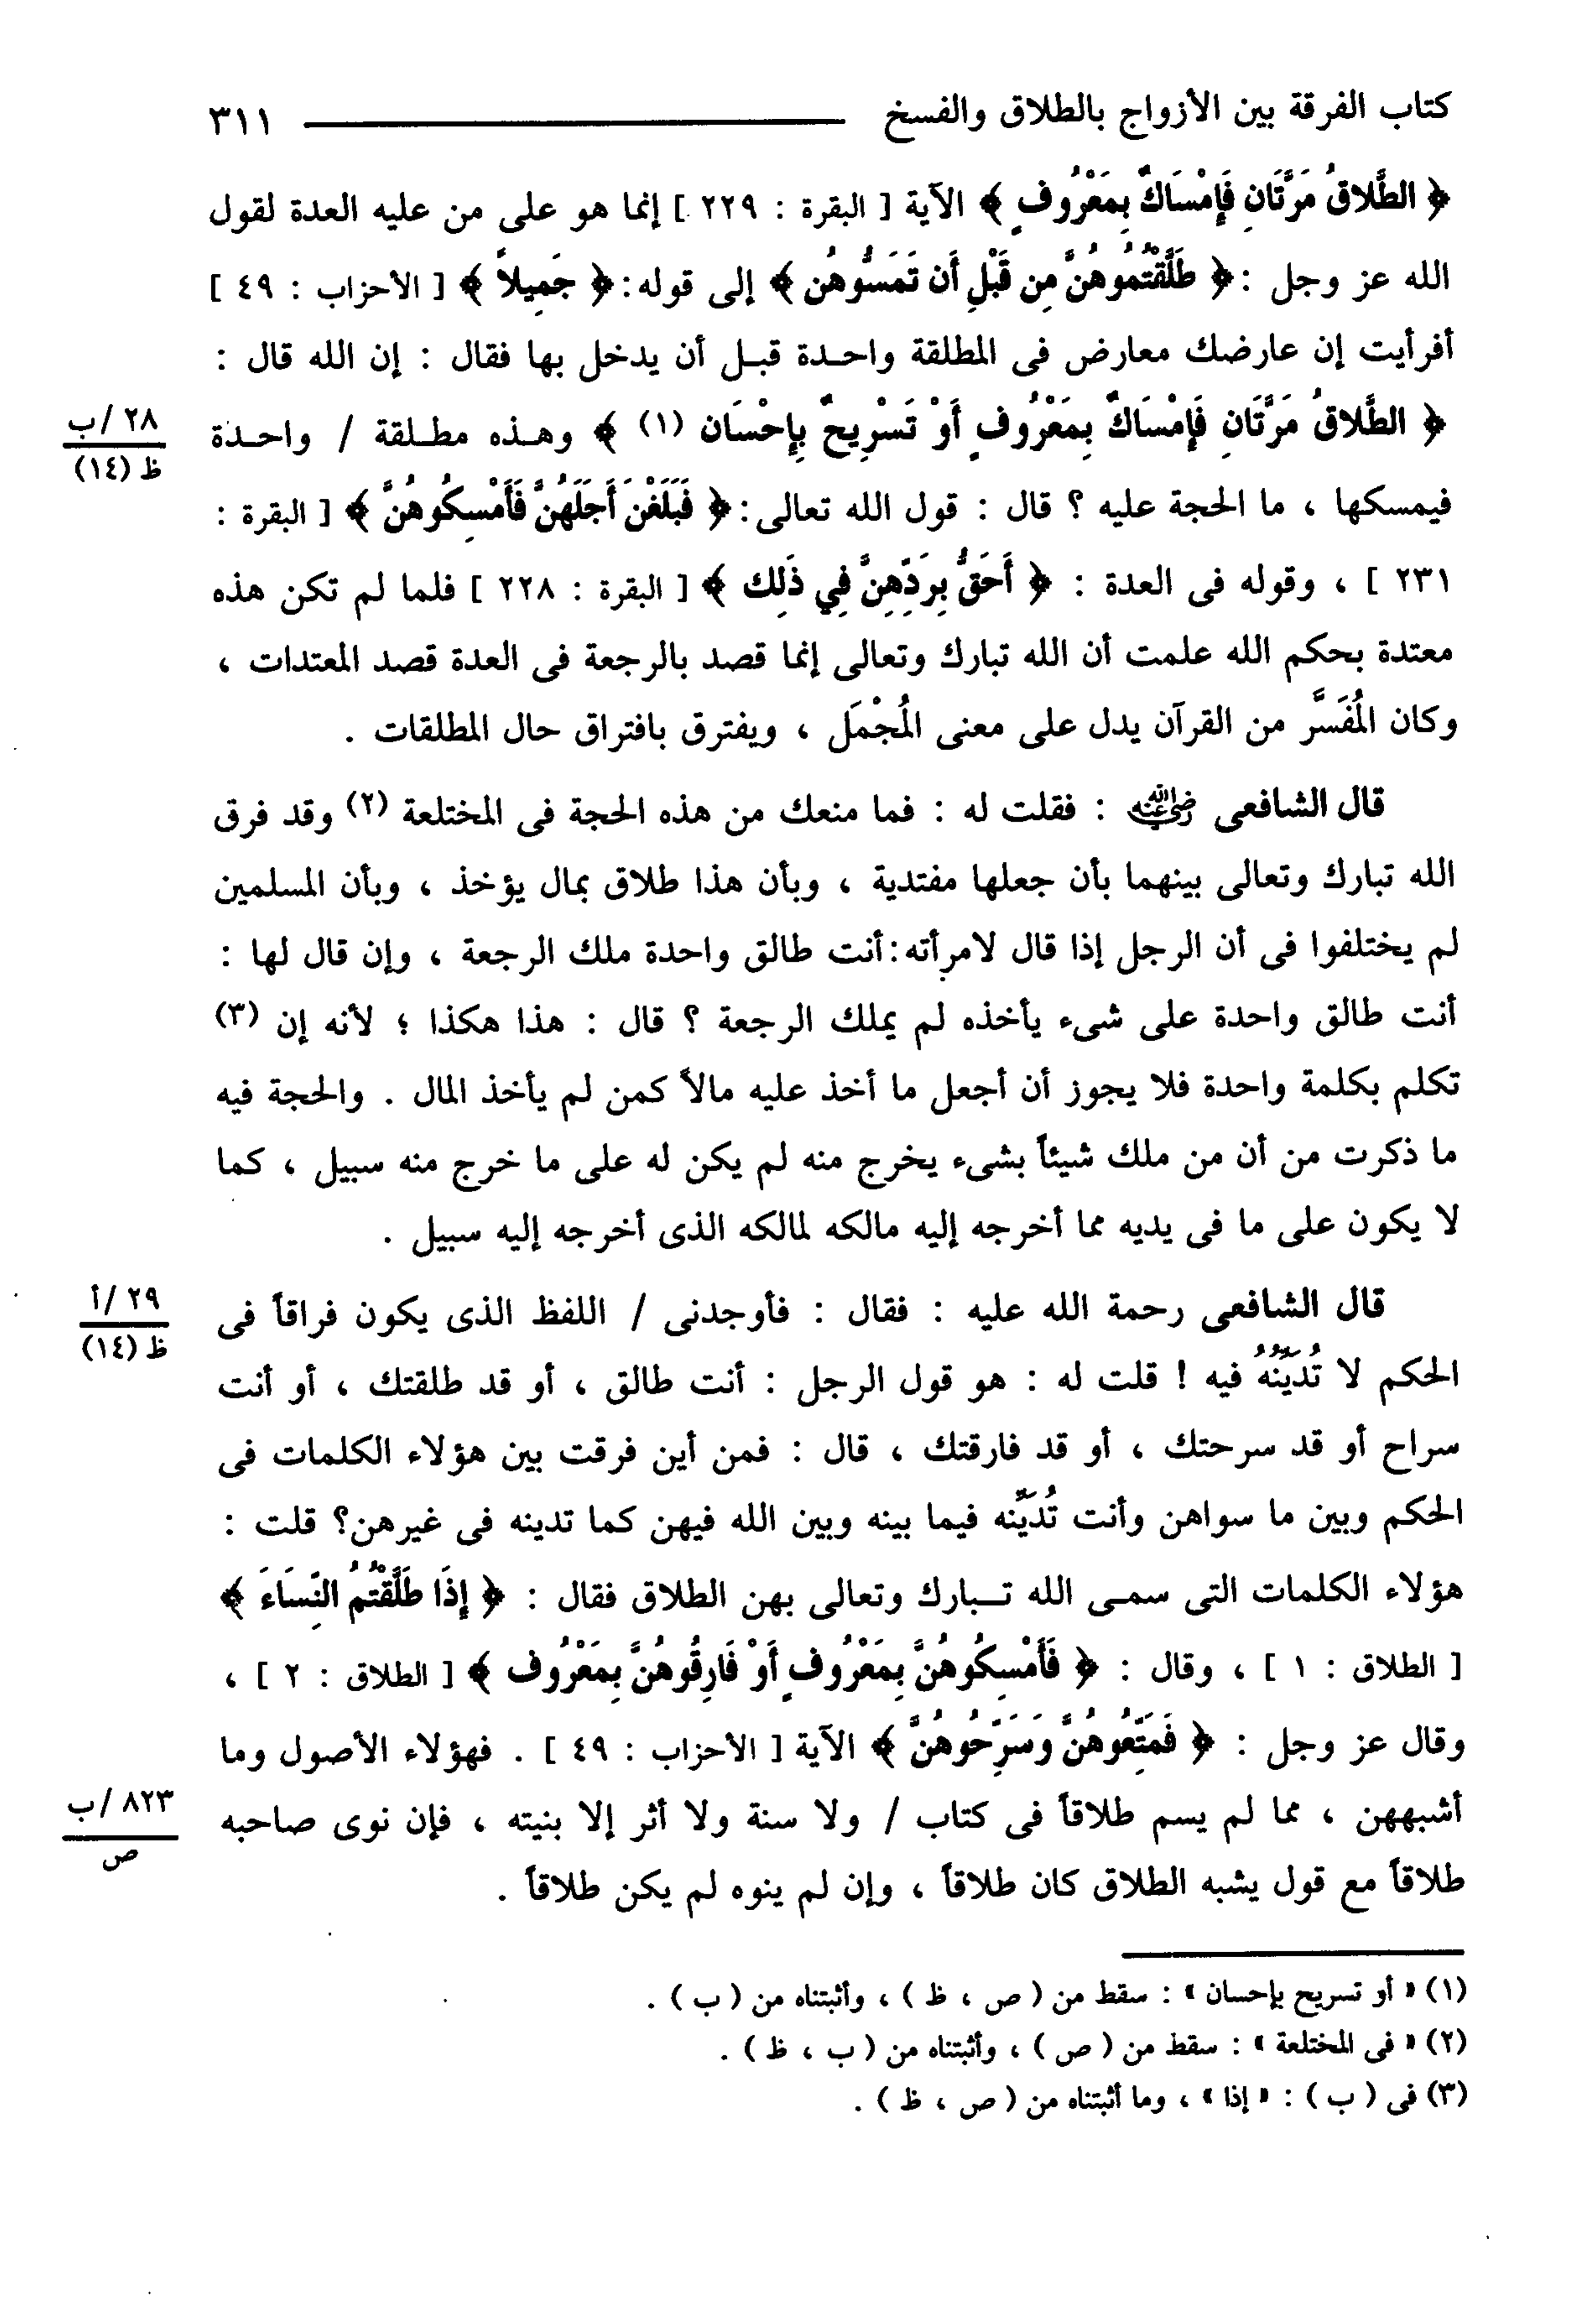 كتاب الفرقة بين الأزواج بالطلاق والفسخ ٣١١
﴿ الطَّلَاقُ مَرَّتَانِ فَإِمْسَاكٌ بِمَعْرُوفٍ ﴾ الآية [ البقرة : ٢٢٩ ] إنما هو على من عليه العدة لقول
الله عز وجل : ﴿ طَلَّقْتُمُوهُنَّ مِن قَبْلِ أَن تَمَسُّوهُن ﴾ إلى قوله: ﴿ جَمِيلاً ﴾ [ الأحزاب : ٤٩ ]
أفرأيت إن عارضك معارض فى المطلقة واحدة قبل أن يدخل بها فقال : إن الله قال :
﴿ الطَّلَاقُ مَرَّتَانِ فَإِمْسَاكٌ بِمَعْرُوفٍ أَوْ تَسْرِيحٌ بِإِحْسَان (١) ﴾ وهذه مطلقة / واحدة
٢٨ /ب
ظ (١٤)
فيمسكها ، ما الحجة عليه ؟ قال : قول الله تعالى: ﴿ فَبَلَغْنَ أَجَلَهُنَّ فَأَمْسِكُوهُنَّ ﴾ [ البقرة :
٢٣١ ] ، وقوله فى العدة : ﴿ أَحَقُّ بِرَدِّهِنَّ فِي ذَلِك ﴾ [ البقرة : ٢٢٨ ] فلما لم تكن هذه
معتدة بحكم الله علمت أن الله تبارك وتعالى إنما قصد بالرجعة فى العدة قصد المعتدات ،
وكان المُفَسَّر من القرآن يدل على معنى المُجْمَل ، ويفترق بافتراق حال المطلقات .
قال الشافعى رضي الله عنه : فقلت له : فما منعك من هذه الحجة فى المختلعة (٢) وقد فرق
الله تبارك وتعالى بينهما بأن جعلها مفتدية ، وبأن هذا طلاق بمال يؤخذ ، وبأن المسلمين
لم يختلفوا فى أن الرجل إذا قال لامرأته: أنت طالق واحدة ملك الرجعة ، وإن قال لها :
أنت طالق واحدة على شىء يأخذه لم يملك الرجعة ؟ قال : هذا هكذا ؛ لأنه إن (٣)
تكلم بكلمة واحدة فلا يجوز أن أجعل ما أخذ عليه مالاً كمن لم يأخذ المال . والحجة فيه
ما ذكرت من أن من ملك شيئاً بشىء يخرج منه لم يكن له على ما خرج منه سبيل ، كما
لا يكون على ما فى يديه مما أخرجه إليه مالكه لمالكه الذى أخرجه إليه سبيل .
قال الشافعى رحمة الله عليه : فقال : فأوجدنى / اللفظ الذى يكون فراقاً فى
٢٩ /أ
ظ (١٤)
الحكم لا تُدَيِّنُهُ فيه ! قلت له : هو قول الرجل : أنت طالق ، أو قد طلقتك ، أو أنت
سراح أو قد سرحتك ، أو قد فارقتك ، قال : فمن أين فرقت بين هؤلاء الكلمات فى
الحكم وبين ما سواهن وأنت تُدَيِّنه فيما بينه وبين الله فيهن كما تدينه فى غيرهن؟ قلت :
هؤلاء الكلمات التى سمى الله تبارك وتعالى بهن الطلاق فقال : ﴿ إِذَا طَلَّقْتُمُ النِّسَاءَ ﴾
[ الطلاق : ١ ] ، وقال : ﴿ فَأَمْسِكُوهُنَّ بِمَعْرُوفٍ أَوْ فَارِقُوهُنَّ بِمَعْرُوف ﴾ [ الطلاق : ٢ ] ،
وقال عز وجل : ﴿ فَمَتِّعُوهُنَّ وَسَرِّحُوهُنَّ ﴾ الآية [ الأحزاب : ٤٩ ] . فهؤلاء الأصول وما
أشبههن ، مما لم يسم طلاقاً فى كتاب / ولا سنة ولا أثر إلا بنيته ، فإن نوى صاحبه
٨٢٣ /ب
ص
طلاقاً مع قول يشبه الطلاق كان طلاقاً ، وإن لم ينوه لم يكن طلاقاً .
(١) « أو تسريح بإحسان » : سقط من ( ص ، ظ ) ، وأثبتناه من ( ب ) .
(٢) « فى المختلعة » : سقط من ( ص ) ، وأثبتناه من ( ب ، ظ ) .
(٣) فى ( ب ) : « إذا » ، وما أثبتناه من ( ص ، ظ ) .